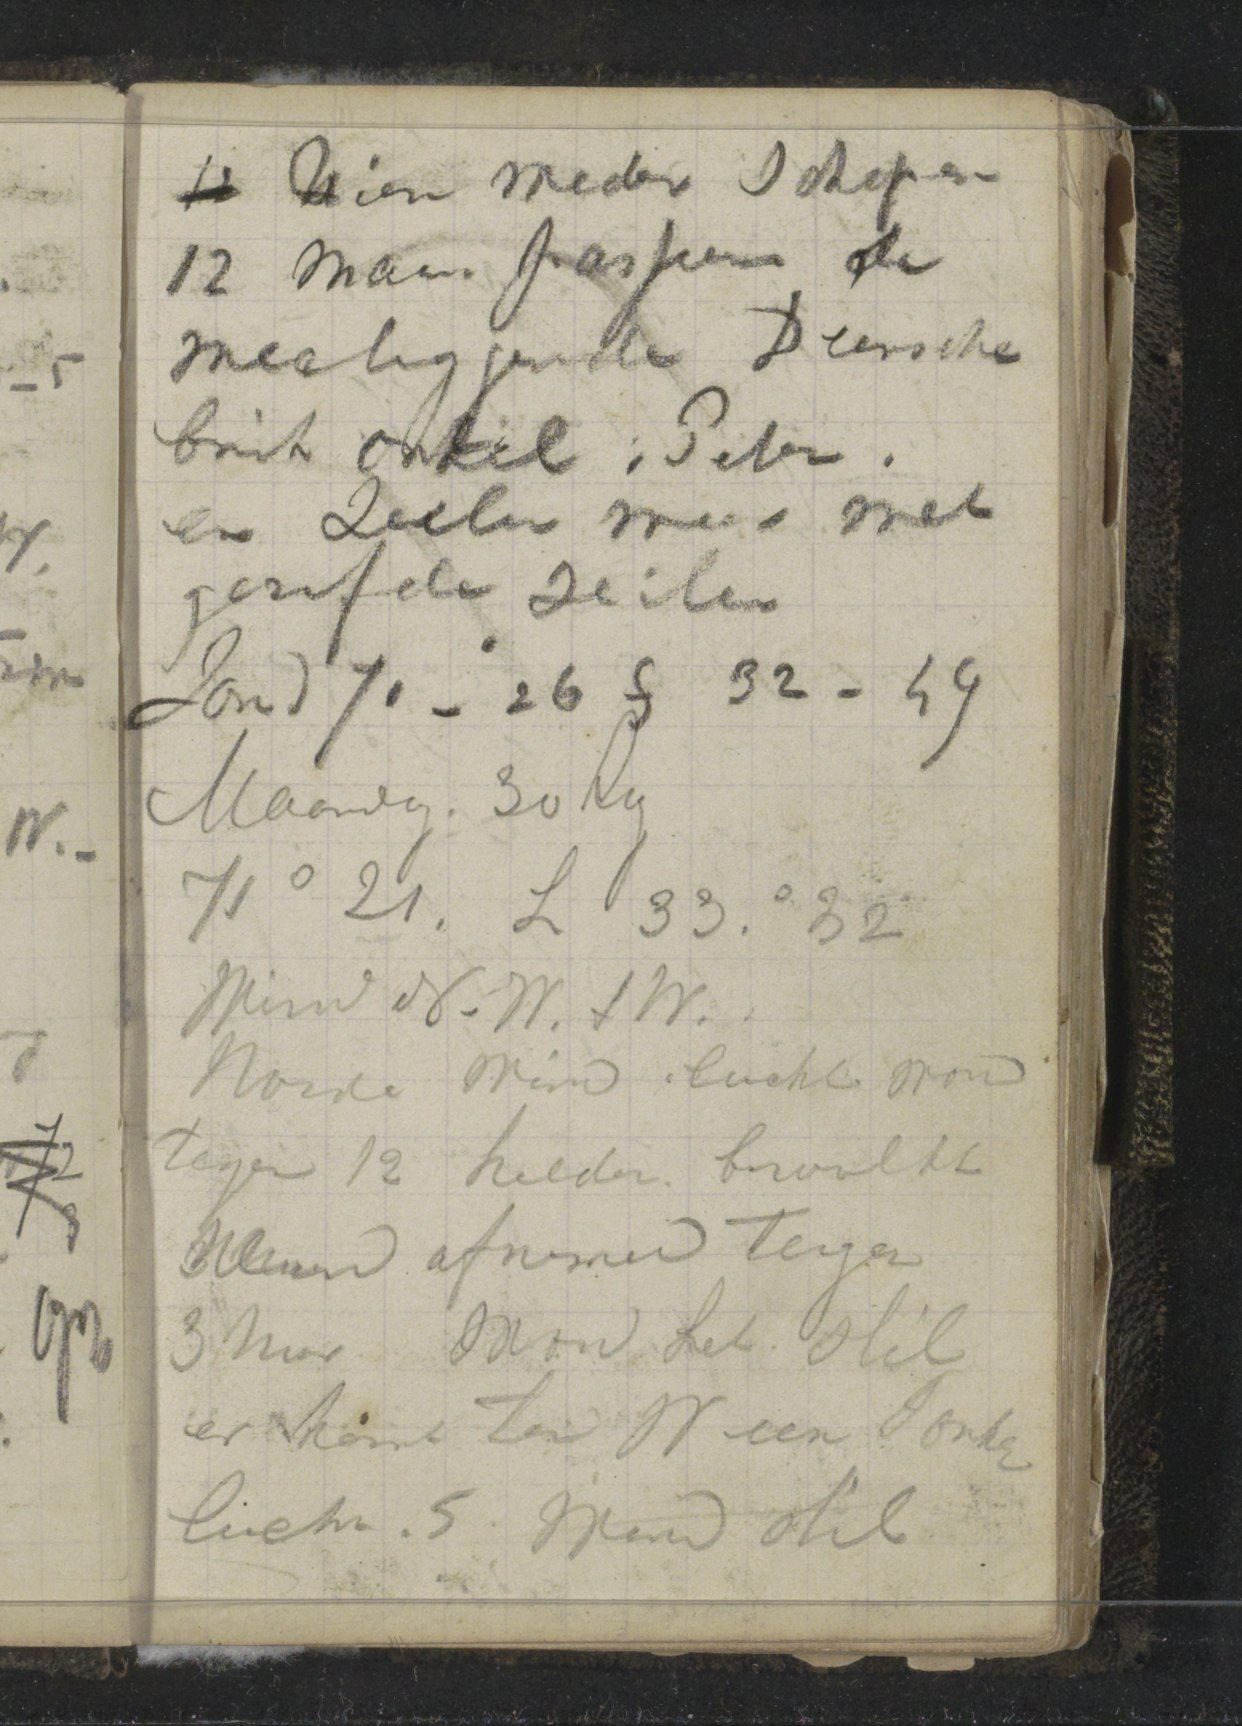 Zien meder Schepen
12 Man passeren de
meeliggende Deensche
brik onkel Peter.
en Zeilen mee met
gereefde Zeilen
Zond 71 - 26 32 - 49
Maandg. 30
71° 21. L 33.° 32
Wind N. W. t W.
Noorde Wind lucht word
tegen 12 helder bewolkt
Wind afnemend tegen
3 Uur Word het stil
er komt ten W een Donke
lucht. 5 Wind stil
-5
W.
W.-